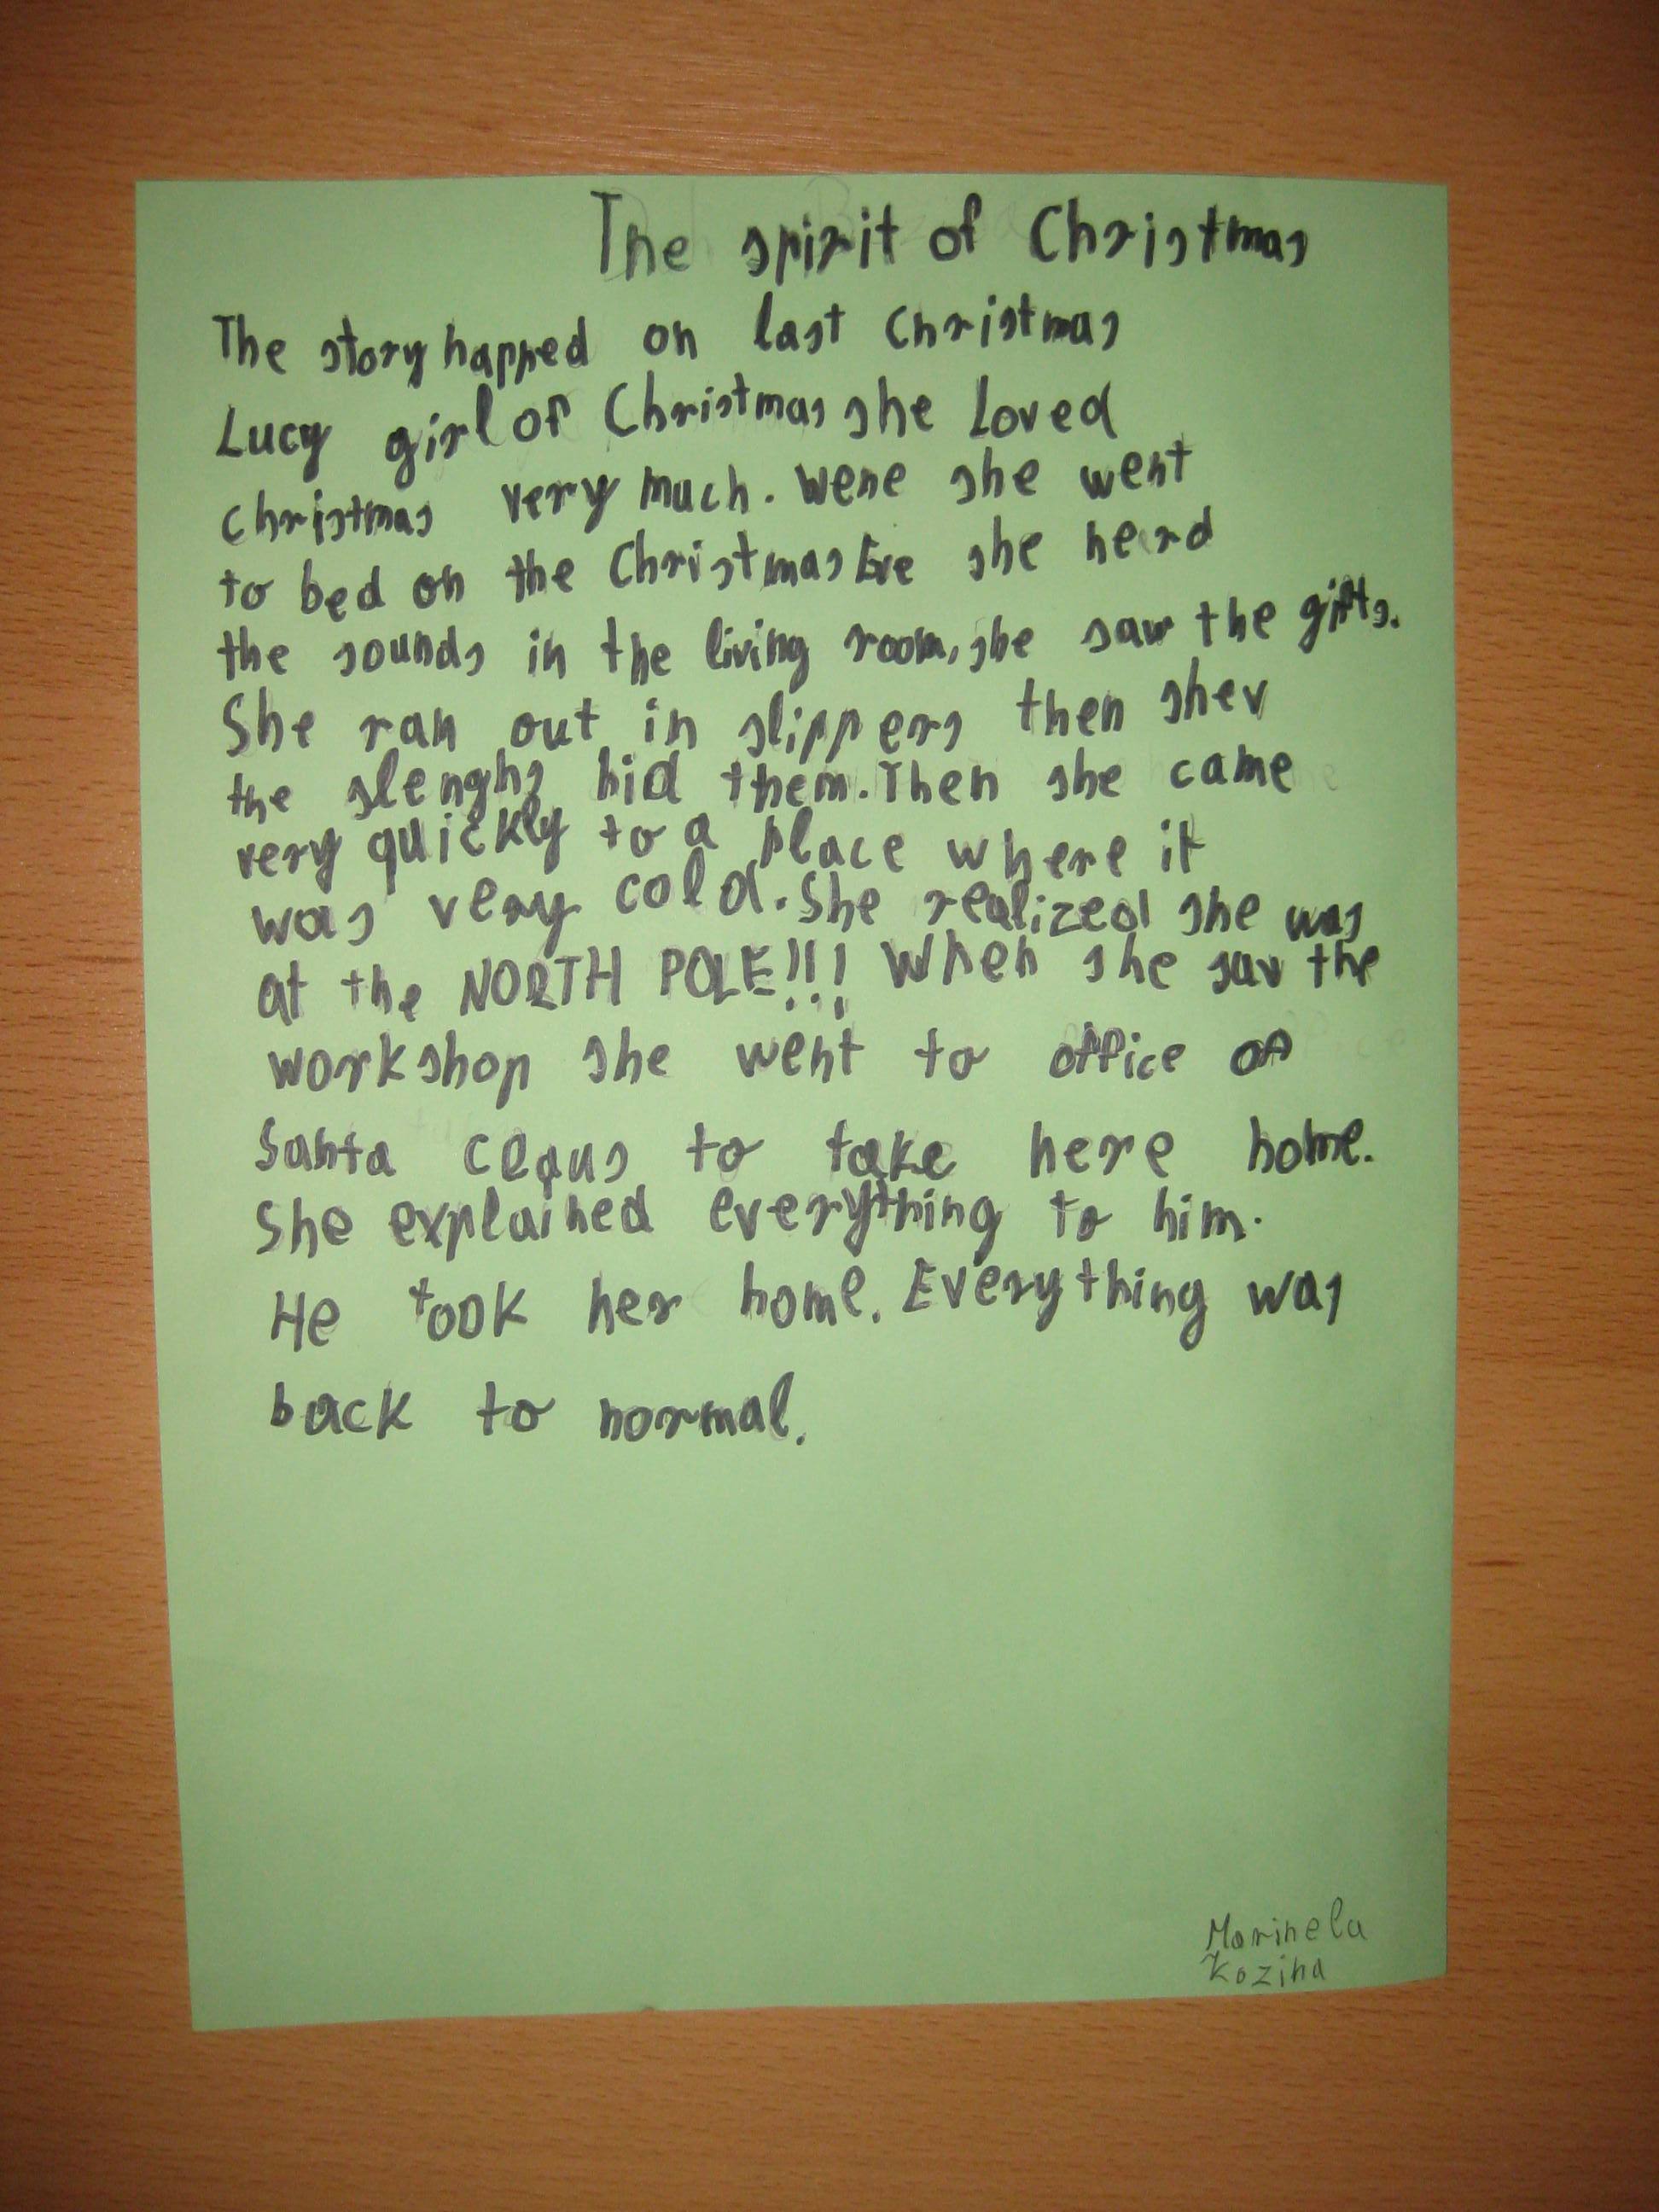 The spirit of Christmas
The story happed on last Christmas
Lucy girl of Christmas she loved
christmas very much. Wene she went
to bed on the Christmas Eve she herd
the sounds in the living room, she saw the gifts.
She ran out in slippers then shev
the slenghs hid them. Then she came
very quickly to a place where it
was very cold. She realized she was
at the NORTH POLE!!! When she sav the
workshop she went to office of
Santa claus to take here home.
She explained everything to him.
He took her home. Everything was
back to normal.
Marinela
Kozina